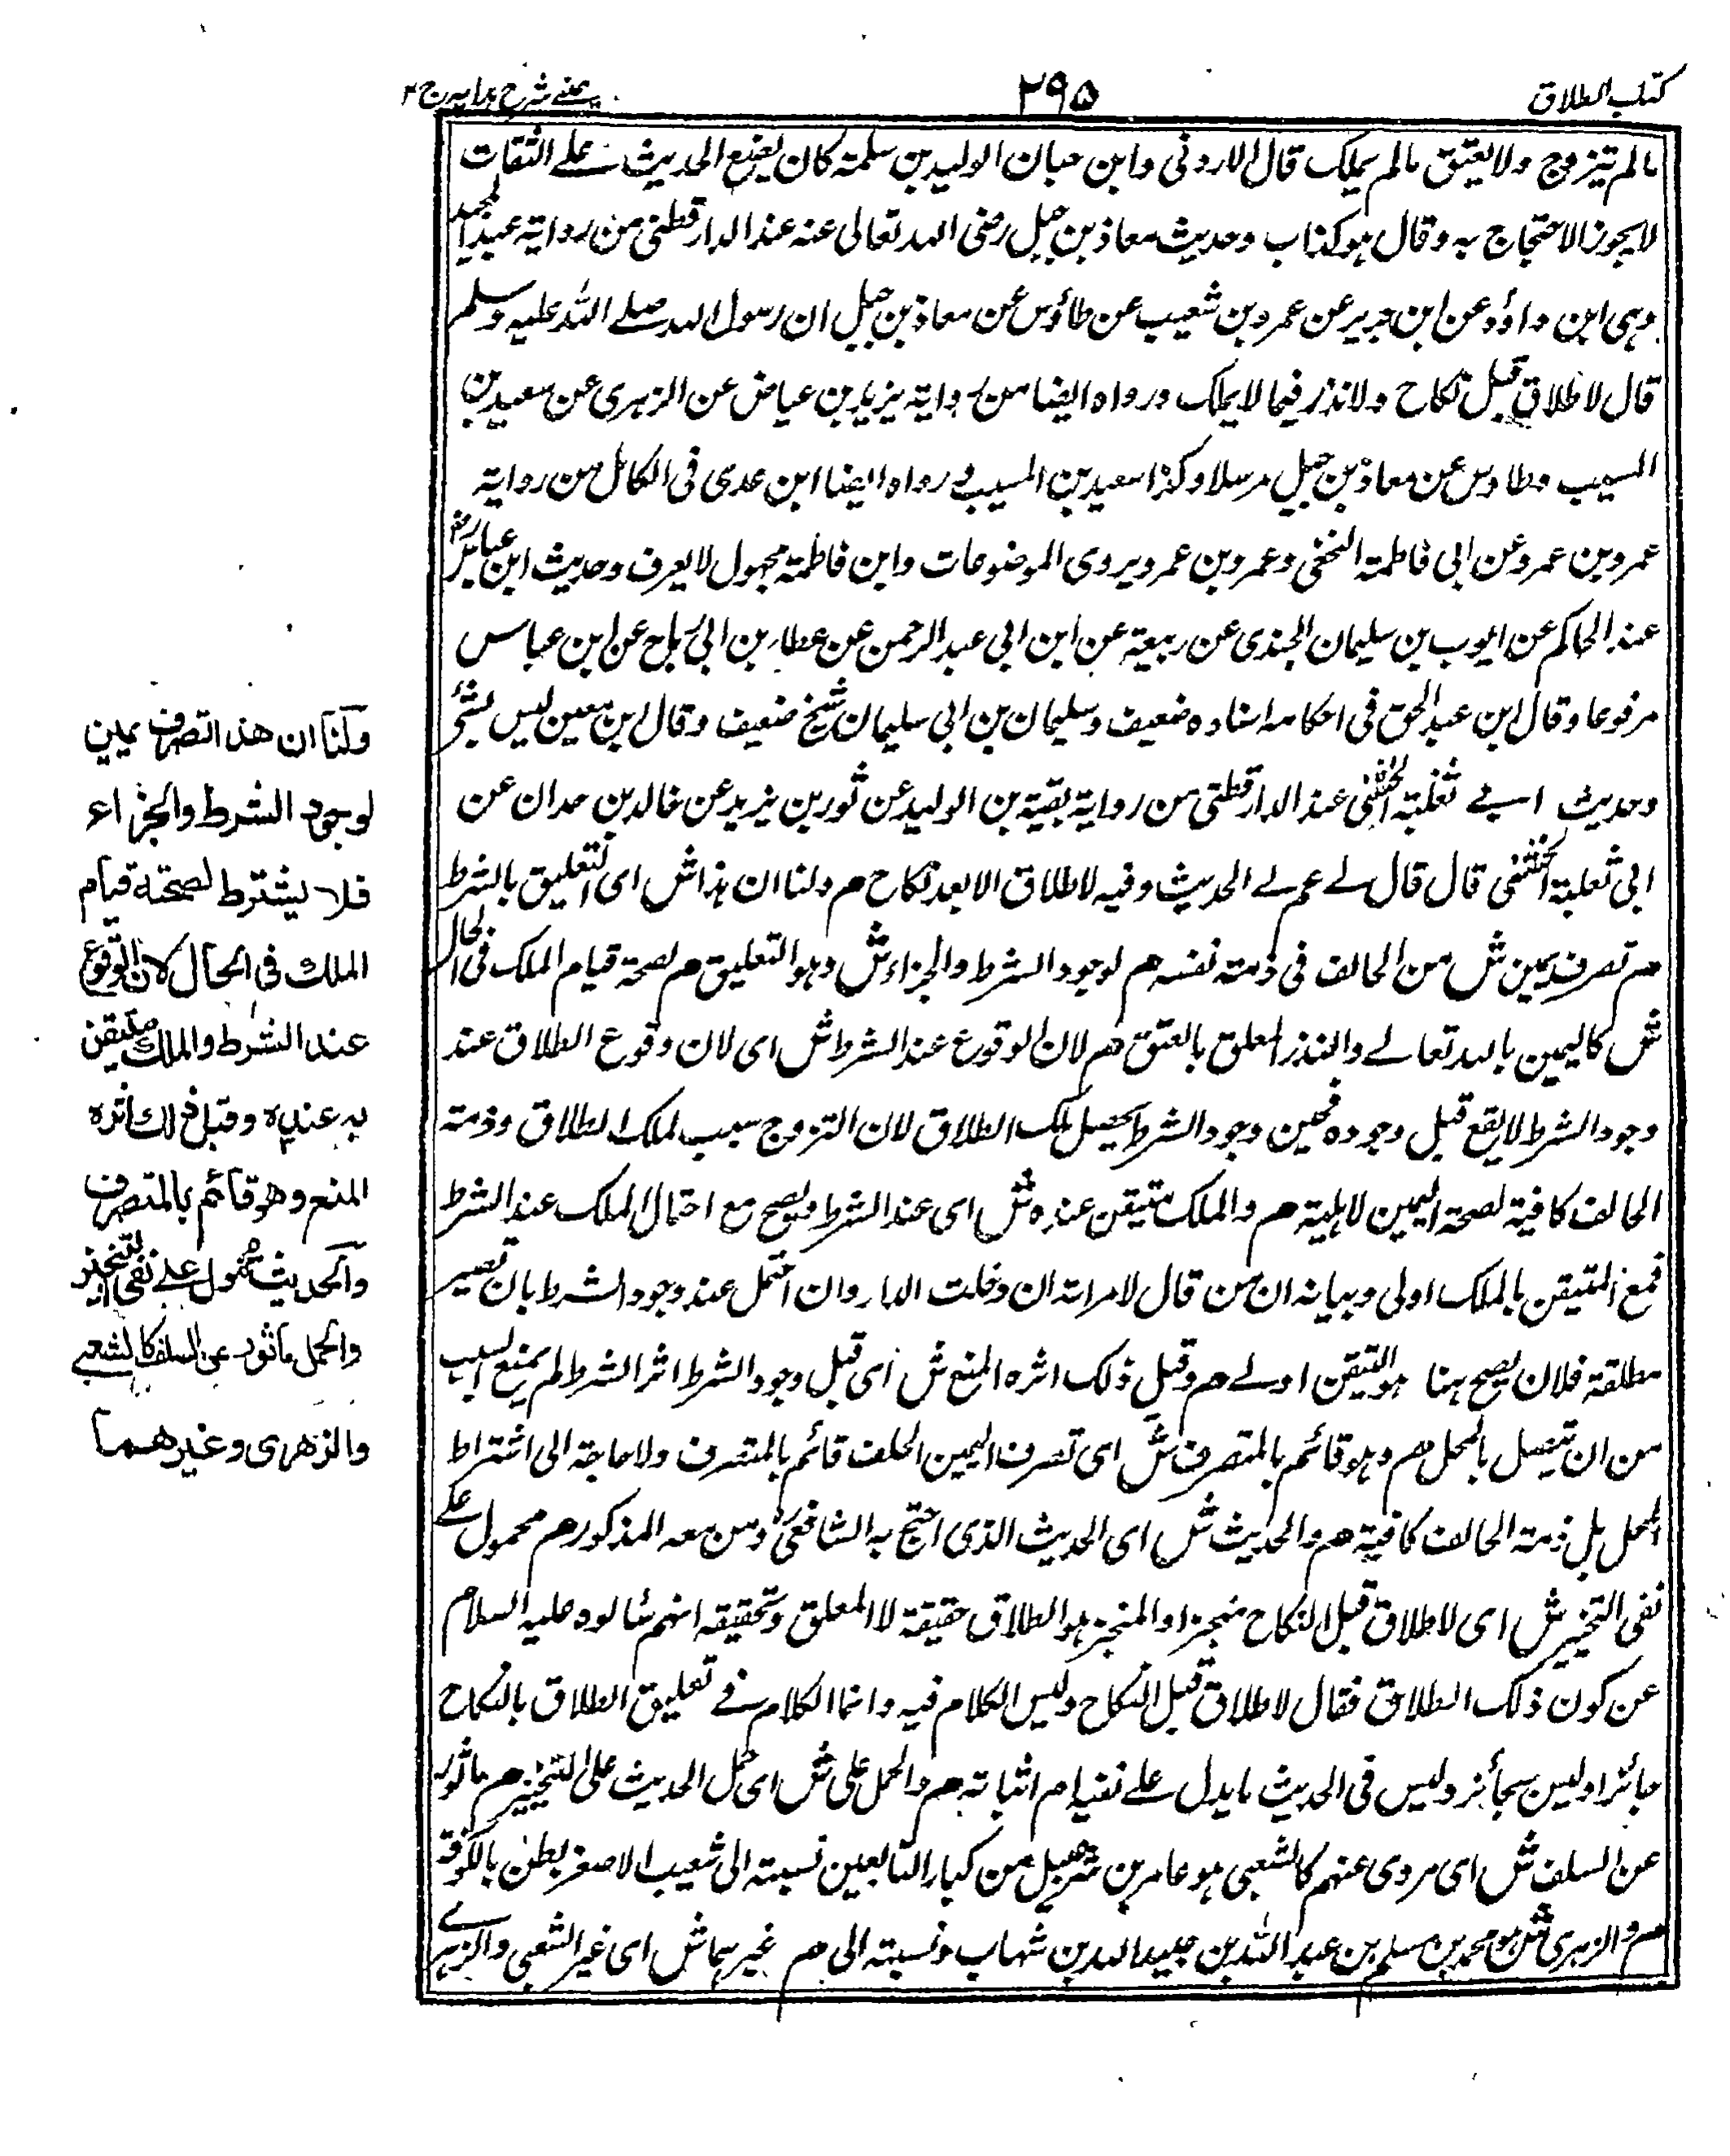 كتاب الطلاق
٢٩٥
عينى شرح هدايه ج ٢
مالم يتزوج ولا يعتق مالم يملك قال الاردنى وابن حبان الوليد بن سلمة كان يضع الحديث على الثقات
لا يجوز الاحتجاج به وقال هو كذاب وحديث معاذ بن جبل رضى الله تعالى عنه عند الدارقطنى من رواية عبد المجيد
وهى ابن داؤد عن ابن جرير عن عمرو بن شعيب عن طاؤس عن معاذ بن جبل ان رسول الله صلى الله عليه وسلم
قال لا طلاق قبل نكاح ولا نذر فيما لا يملك ورواه ايضا من رواية يزيد بن عياض عن الزهرى عن سعيد بن
المسيب وطاوس عن معاذ بن جبل مرسلا وكذا سعيد بن المسيب رواه ايضا ابن عدى فى الكامل من رواية
عمرو بن عمرو عن ابى فاطمة النخعى وعمرو بن عمرو يروى الموضوعات وابن فاطمة مجهول لا يعرف وحديث ابن عباس رض
عند الحاكم عن ايوب بن سليمان الجندى عن ربيعة عن ابن ابى عبد الرحمن عن عطاء بن ابى رباح عن ابن عباس
مرفوعا وقال ابن عبد الحق فى احكامه اسناده ضعيف وسليمان بن ابى سليمان شيخ ضعيف وقال ابن معين ليس بشئ
وحديث ابى ثعلبة الخشنى عند الدارقطنى من رواية بقية بن الوليد عن ثور بن يزيد عن خالد بن معدان عن
ابى ثعلبة الخشنى قال قال لى عم لى الحديث وفيه لا طلاق الا بعد نكاح م ولنا ان هذا ش اى التعليق بالشرط
م تصرف يمين ش من الحالف فى ذمته نفسه م لوجود الشرط والجزاء ش وهو التعليق م لصحة قيام الملك فى الحال
ش كاليمين بالله تعالى والنذر المعلق بالعتق م لان الوقوع عند الشرط ش اى لان وقوع الطلاق عند
وجود الشرط لا يقع قبل وجوده فحين وجود الشرط يحصل ملك الطلاق لان التزوج سبب لملك الطلاق وذمة
الحالف كافية لصحة اليمين لاهلية م والملك متيقن عنده ش اى عند الشرط ويصح مع احتمال الملك عند الشرط
فمع المتيقن بالملك اولى وبيانه ان من قال لامراته ان دخلت الدار وان احتمل عند وجود الشرط بان تصير
مطلقة فلان يصح هنا هو المتيقن اولى م وقبل ذلك اثره المنع ش اى قبل وجود الشرط اثر الشرط لم يمنع السبب
من ان يتصل بالمحل م وهو قائم بالمتصرف ش اى تصرف اليمين الحلف قائم بالمتصرف ولا حاجة الى اشتراط
المحل بل ذمة الحالف كافية م والحديث ش اى الحديث الذى احتج به الشافعى ومن معه المذكور م محمول على
نفى التنجيز ش اى لا طلاق قبل النكاح منجزا والمنجز هو الطلاق حقيقة لا المعلق وتحقيقه انهم سالوه عليه السلام
عن كون ذلك الطلاق فقال لا طلاق قبل النكاح وليس الكلام فيه وانما الكلام فى تعليق الطلاق بالنكاح
جائز او ليس بجائز وليس فى الحديث ما يدل على نفيه ام اثباته م والحمل على ش اى حمل الحديث على التنجيز م ماثور
عن السلف ش اى مروى عنهم كالشعبى هو عامر بن شرحبيل من كبار التابعين نسبته الى شعيب الاصغر بطن بالكوفة
م والزهرى ش هو محمد بن مسلم بن عبد الله بن عبيد الله بن شهاب ونسبته الى م غيرهما ش اى غير الشعبى والزهرى
ولنا ان هذا التصرف يمين
لوجود الشرط والجزاء
فلا يشترط لصحته قيام
الملك فى الحال لان الوقوع
عند الشرط والملك متيقن
به عنده وقبل ذلك اثره
المنع وهو قائم بالمتصرف
والحديث محمول على نفى التنجيز
والحمل ماثور عن السلف كالشعبى
والزهرى وغيرهما